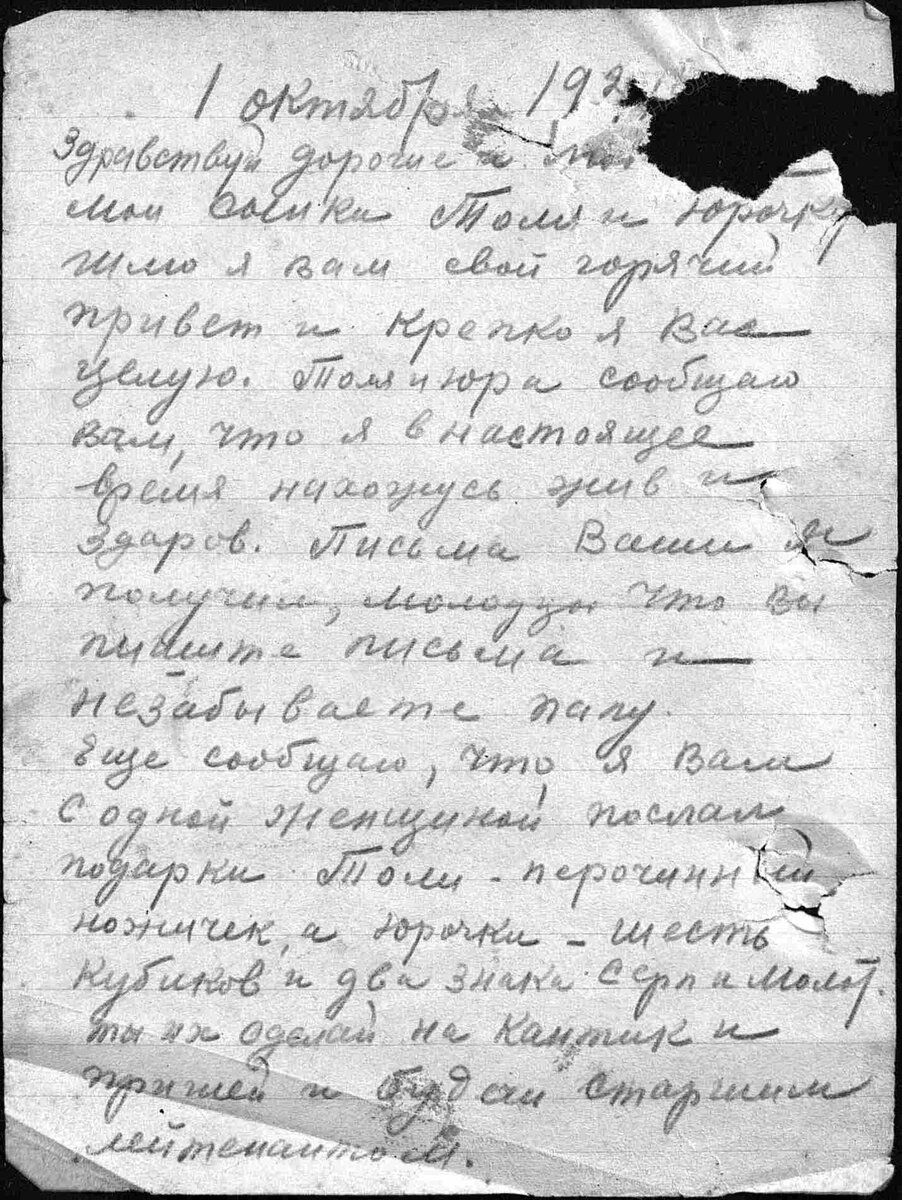 1 октября 19
Здравствуй дорогие и
мои сынки Толя и Юрочка
шлю я вам свой горячий
привет и крепко я Вас
целую. Толя и Юра сообщаю
вам, что я в настоящее
время нахожусь жив и
здаров. Письма Ваши я
получил, молодцы что вы
пишите письма и
незабываете папу.
Еще сообщаю, что я Вам
с одной женщиной послал
подарки Толи - перочинный
ножичек, а Юрочки - шесть
кубиков и два знака Серп и Молот.
ты их сделай на кантик и
пришей и будеш старшим
лейтенантом.